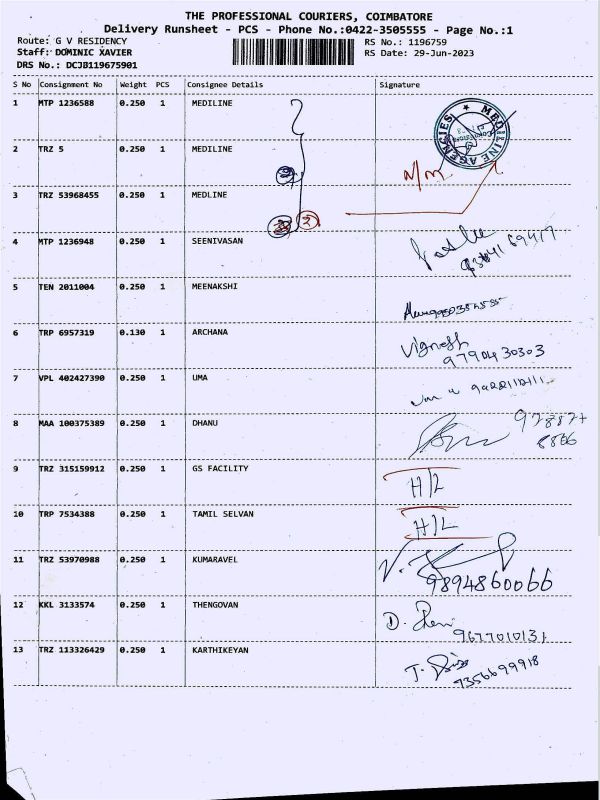 THE PROFESSIONAL COURIERS, COIMBATORE
Delivery Runsheet - PCS - Phone No.:0422-3505555 - Page No.:1
Route: G V RESIDENCY
RS No.: 1196759
Staff: DOMINIC XAVIER
RS Date: 29-Jun-2023
DRS No.: DCJB119675901
S No Consignment No Weight PCS Consignee Details Signature
1 MTP 1236588 0.250 1 MEDILINE
MEDLINE AGENCIES
2 TRZ 5 0.250 1 MEDILINE
N/M
3 TRZ 53968455 0.250 1 MEDLINE
4 MTP 1236948 0.250 1 SEENIVASAN
5 TEN 2011004 0.250 1 MEENAKSHI
6 TRP 6957319 0.130 1 ARCHANA Vignesh
9790430303
7 VPL 402427390 0.250 1 UMA
8 MAA 100375389 0.250 1 DHANU
9 TRZ 315159912 0.250 1 GS FACILITY H/L
10 TRP 7534388 0.250 1 TAMIL SELVAN H/L
11 TRZ 53970988 0.250 1 KUMARAVEL
9894860066
12 KKL 3133574 0.250 1 THENGOVAN
9677010131
13 TRZ 113326429 0.250 1 KARTHIKEYAN
7356699918